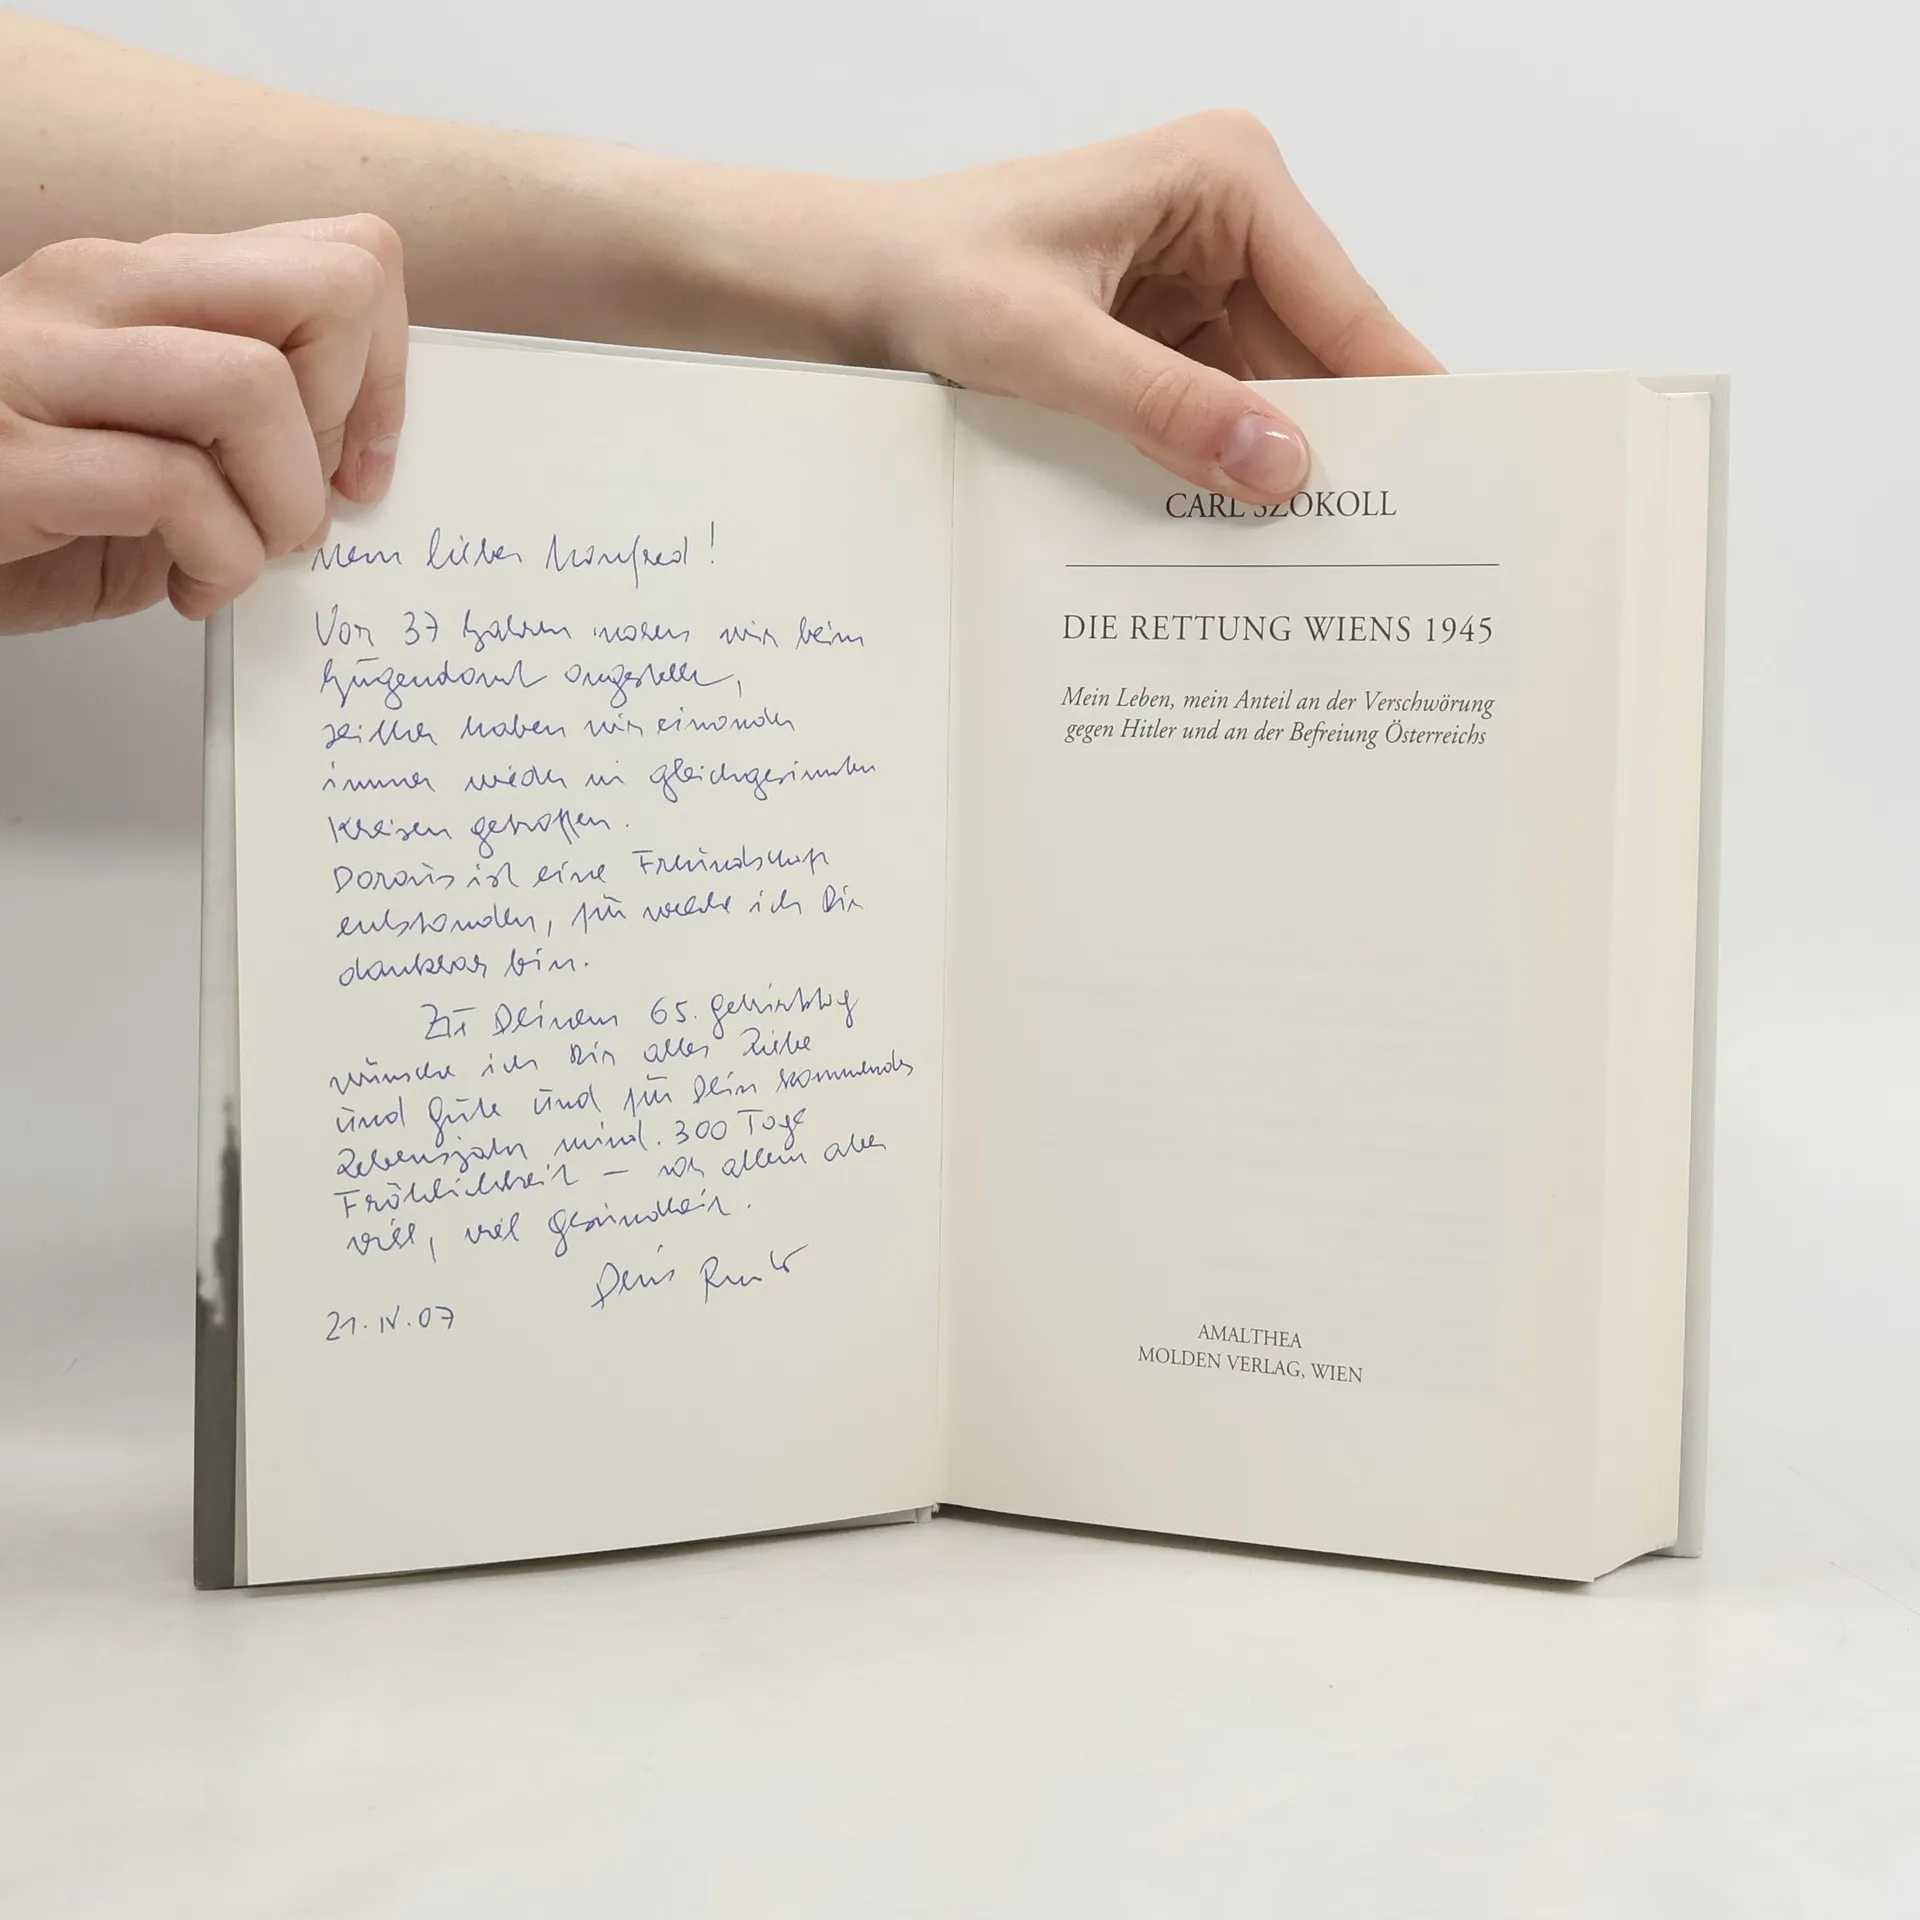 Mein lieber Manfred!
Vor 37 Jahren waren wir beim
Jugendamt angestellt,
seither haben wir einander
immer wieder in gleichgesinnten
Kreisen getroffen.
Daraus ist eine Freundschaft
entstanden, für welche ich Dir
dankbar bin.
Zu Deinem 65. Geburtstag
wünsche ich Dir alles Liebe
und Gute und für Dein kommendes
Lebensjahr mind. 300 Tage
Fröhlichkeit – vor allem aber
viel, viel Gesundheit.
Dein
21.IV.07
CARL SZOKOLL
DIE RETTUNG WIENS 1945
Mein Leben, mein Anteil an der Verschwörung
gegen Hitler und an der Befreiung Österreichs
AMALTHEA
MOLDEN VERLAG, WIEN